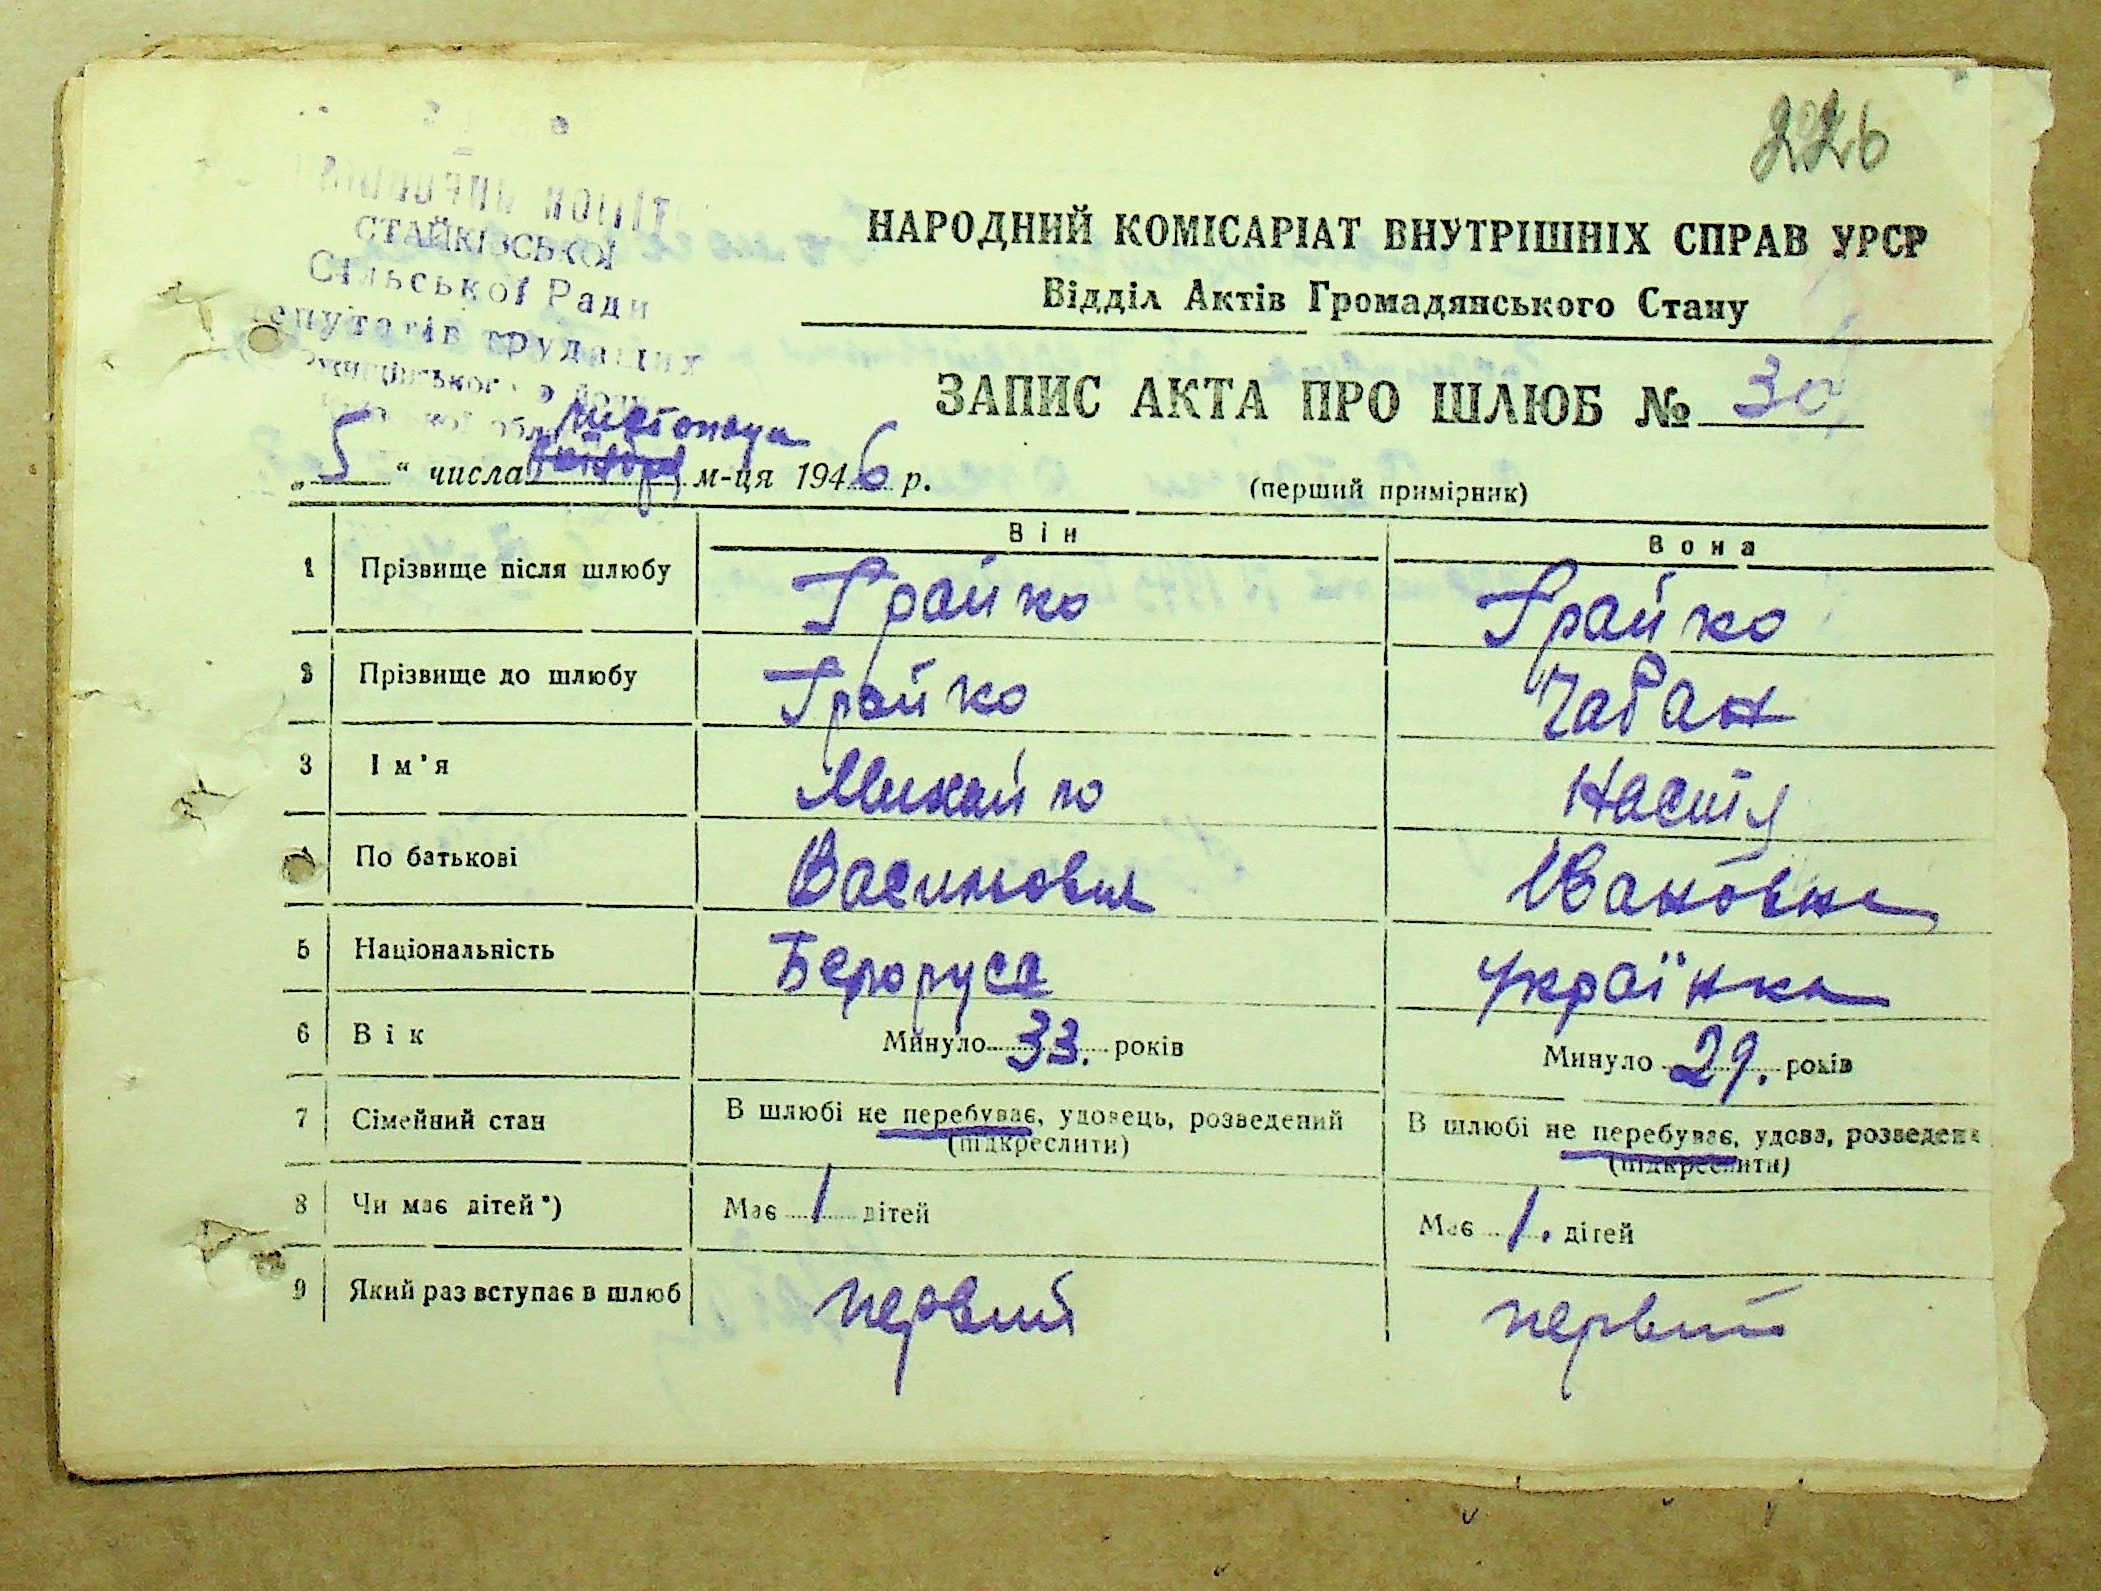 226
СТАЙКІВСЬКОЇ
Сільської Ради
депутатів трудящих
НАРОДНИЙ КОМІСАРІАТ ВНУТРІШНІХ СПРАВ УРСР
Відділ Актів Громадянського Стану
ЗАПИС АКТА ПРО ШЛЮБ № 30
листопада
„ 5 “ числа м-ця 1946 р.
(перший примірник)
Він Вона
1 Прізвище після шлюбу Грайко Грайко
2 Прізвище до шлюбу Грайко Чабан
3 Ім'я Михайло Настя
4 По батькові Васильович Івановна
5 Національність Білоруса Українка
6 Вік Минуло 33. років Минуло 29. років
7 Сімейний стан В шлюбі не перебуває, удовець, розведений В шлюбі не перебуває, удова, розведена
(підкреслити) (підкреслити)
8 Чи має дітей*) Має 1 дітей Має 1. дітей
9 Який раз вступає в шлюб первий первий